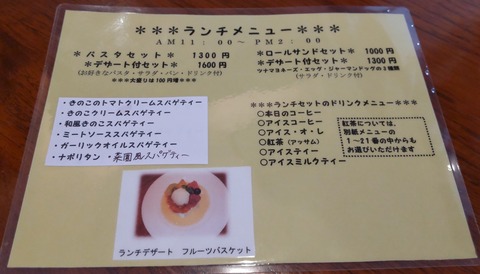 ＊＊＊ランチメニュー＊＊＊
AM11：00～PM2：00
＊パスタセット＊ 1300円
＊デザート付セット＊ 1600円
(お好きなパスタ・サラダ・パン・ドリンク付)
※※※大盛りは100円増※※※
＊ロールサンドセット＊ 1000円
＊デザート付セット＊ 1300円
ツナマヨネーズ・エッグ・ジャーマンドッグの3種類
(サラダ・ドリンク付)
・きのこのトマトクリームスパゲティー
・きのこクリームスパゲティー
・和風きのこスパゲティー
・ミートソーススパゲティー
・ガーリックオイルスパゲティー
・ナポリタン ・菜園風スパゲティー
＊＊＊ランチセットのドリンクメニュー＊＊＊
○本日のコーヒー
○アイスコーヒー
○アイス・オ・レ
○紅茶（アッサム）
○アイスティー
○アイスミルクティー
紅茶については、
別紙メニューの
1～21番の中からも
お選びいただけます
ランチデザート フルーツバスケット